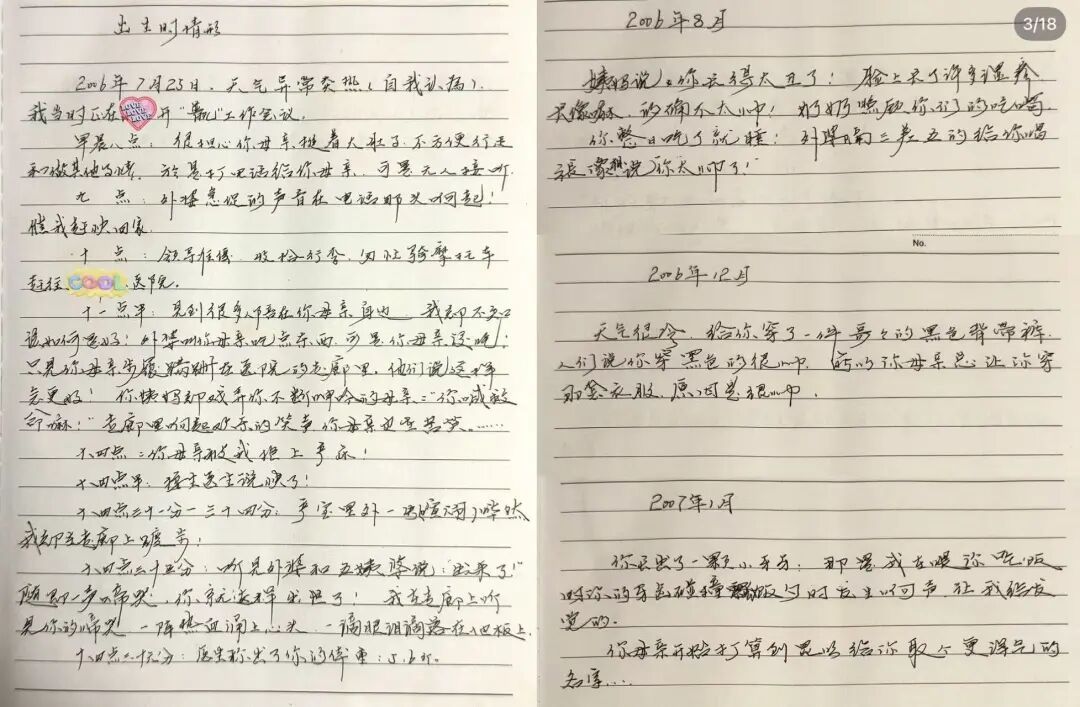 出生时情形
2006年7月25日、天气异常炎热(自我认为).
我当时正在 LOVE LOVE LOVE 开" "工作会议.
早晨八点: 很担心你母亲挺着大肚子、不方便行走
和做其他事情. 于是打电话给你母亲、可是无人接听.
九点: 外婆急促的声音在电话那头响起!
催我赶快回家.
十点: 领导准假 收拾行李、匆忙骑摩托车
赶往 COOL 医院.
十一点半: 见到很多人陪在你母亲身边 我却不知
该如何是好! 外婆叫你母亲吃点东西、可是你母亲没吃!
只见你母亲步履蹒跚在医院的走廊里、他们说这样
会更好! 你姨妈却戏弄你不断呻吟的母亲:"你喊救
命嘛!"走廊里响起欢乐的笑声你母亲也在苦笑……
十四点:你母亲被我抱上产床!
十四点半: 接生医生说快了!
十四点三十一分一三十四分: 产室里外一 哗然
我却在走廊上踱步!
十四点三十五分: 听见外婆和五姨婆说:"出来了!"
随即一声啼哭、你就这样出现了! 我在走廊上听
见你的啼哭 一阵热血涌上心头 一滴眼泪滴落在地板上.
十四点 分: 医生称出了你的体重: 5.6斤.
3/18
2006年8月
姨妈说:你长得太丑了! 脸上长了许多湿疹
的确不太好! 奶奶照顾你们的吃喝
你整日吃了就睡: 外婆隔三差五的给你唱
说你太 了!
No.
2006年12月
天气很冷、给你穿了一件 的黑色背带裤.
人们说你穿黑色的很 、所以你母亲总让你穿
那套衣服、原因是很 .
2007年1月
你长出了一颗小牙齿: 那是我在喂你吃饭
时你的牙齿碰撞 饭勺时发出响声、让我给发
觉的.
你母亲开始打算到昆明给你取个更漂亮的
名字....